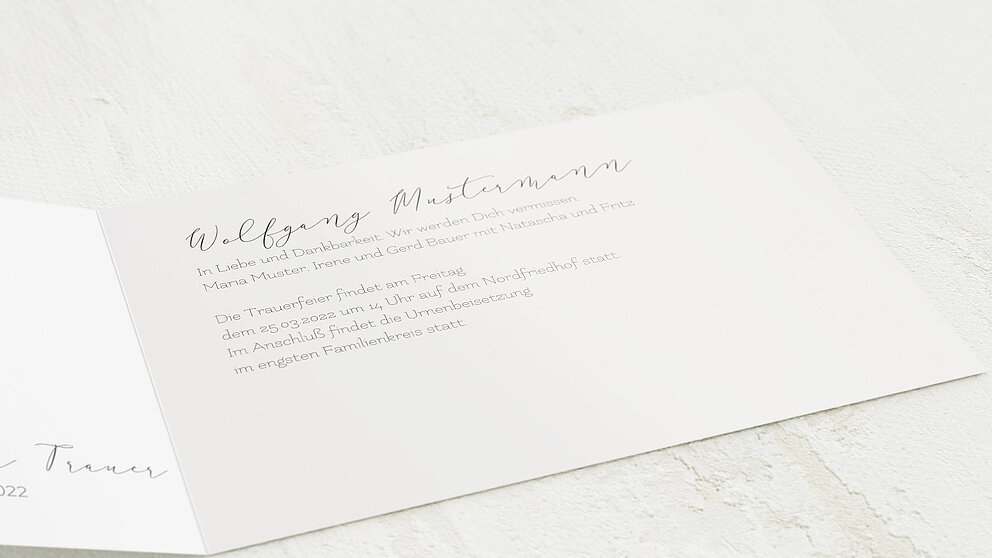 Wolfgang Mustermann
In Liebe und Dankbarkeit. Wir werden Dich vermissen.
Maria Muster, Irene und Gerd Bauer mit Natascha und Fritz
Die Trauerfeier findet am Freitag,
dem 25.03.2022 um 14 Uhr auf dem Nordfriedhof statt.
Im Anschluß findet die Urnenbeisetzung
im engsten Familienkreis statt.
Trauer
022